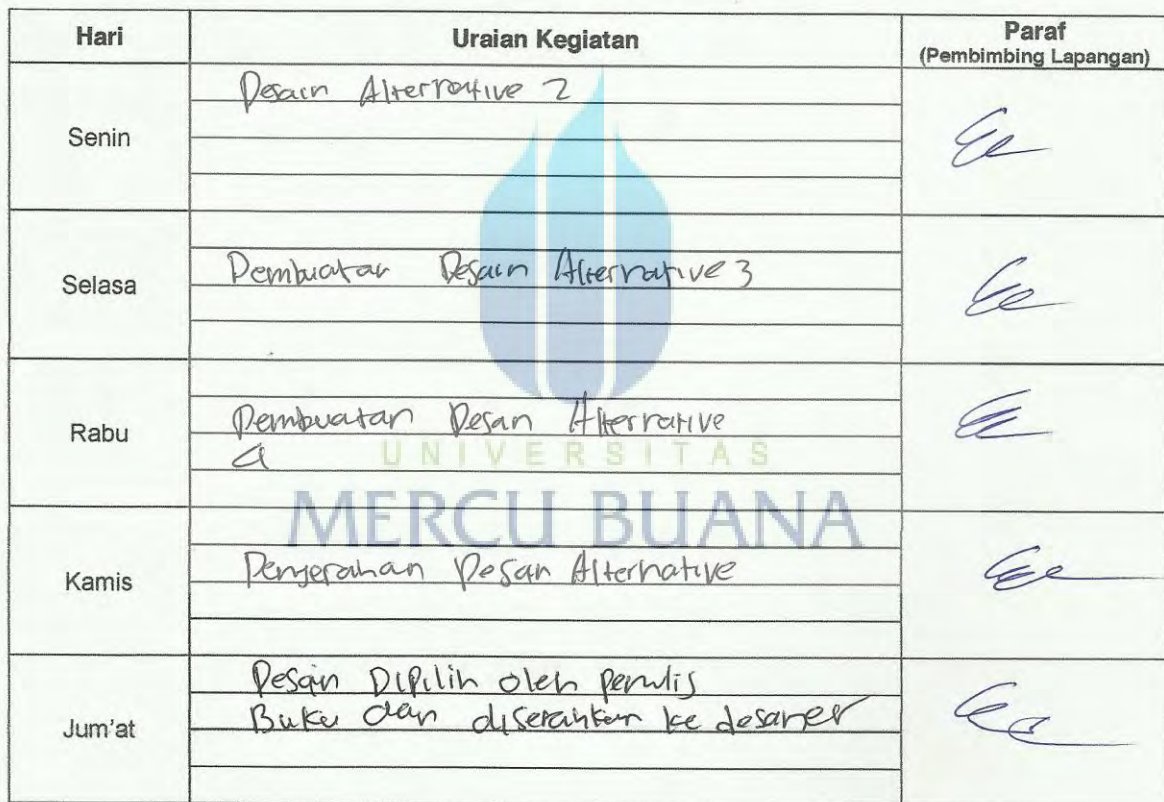 Hari
Uraian Kegiatan
Paraf
(Pembimbing Lapangan)
Senin
Desain Alternative 2
Selasa
Pembuatan Desain Alternative 3
Rabu
Pembuatan Desan Alternative
4
UNIVERSITAS
MERCU BUANA
Kamis
Penyerahan Desan Alternative
Jum'at
Desain Dipilih oleh penulis
Buku dan diserahkan ke desaner